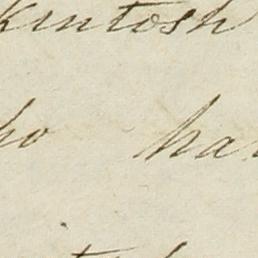 kintosh
ho har